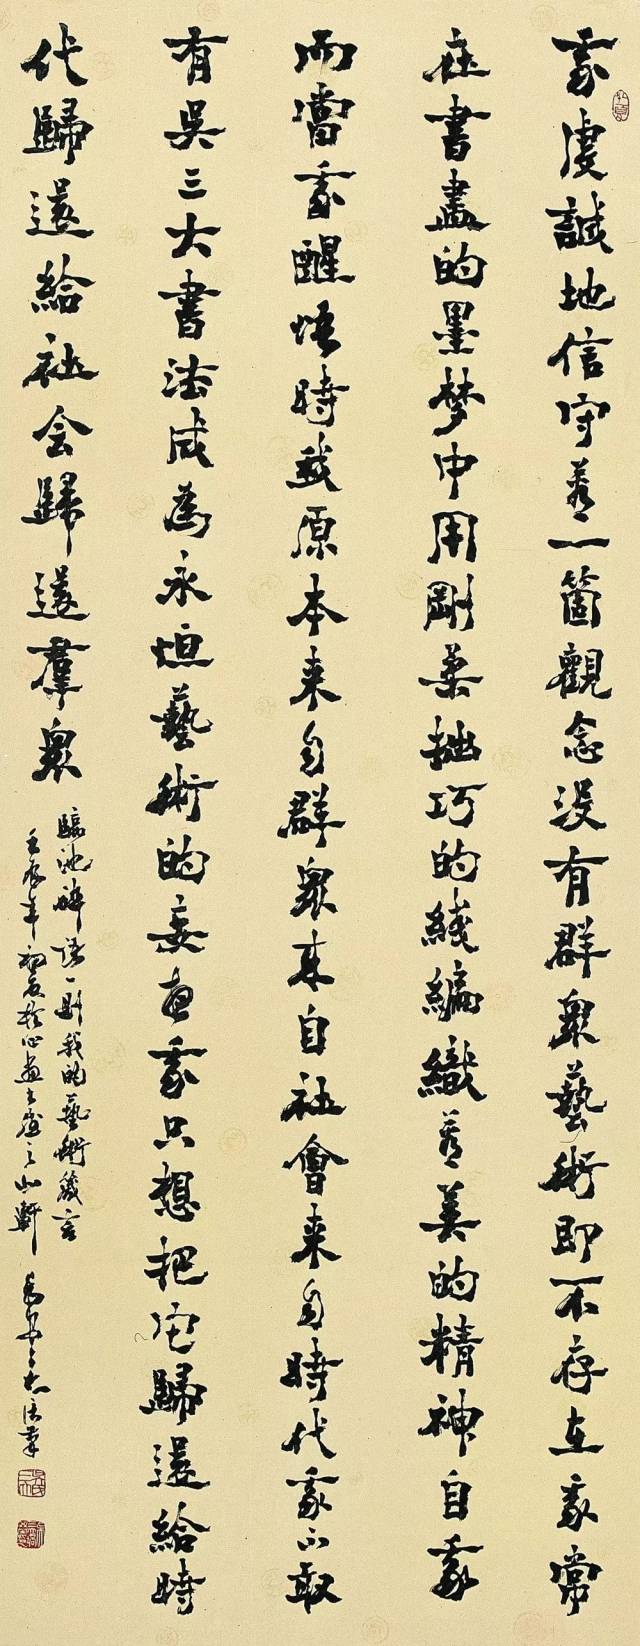 我虔誠地信守着一箇觀念没有群衆藝術即不存在我常
在書畫的墨梦中用剛柔拙巧的綫編織着美的精神自我
而當我醒悟時我原本来自群衆来自社會来自時代我不敢
有吴三大書法成為永恒藝術的妄我只想把它歸還給時
代歸還給社会歸還羣衆
臨池碎語一則我的藝術箴言
壬辰年初夏於心画之廬之小軒